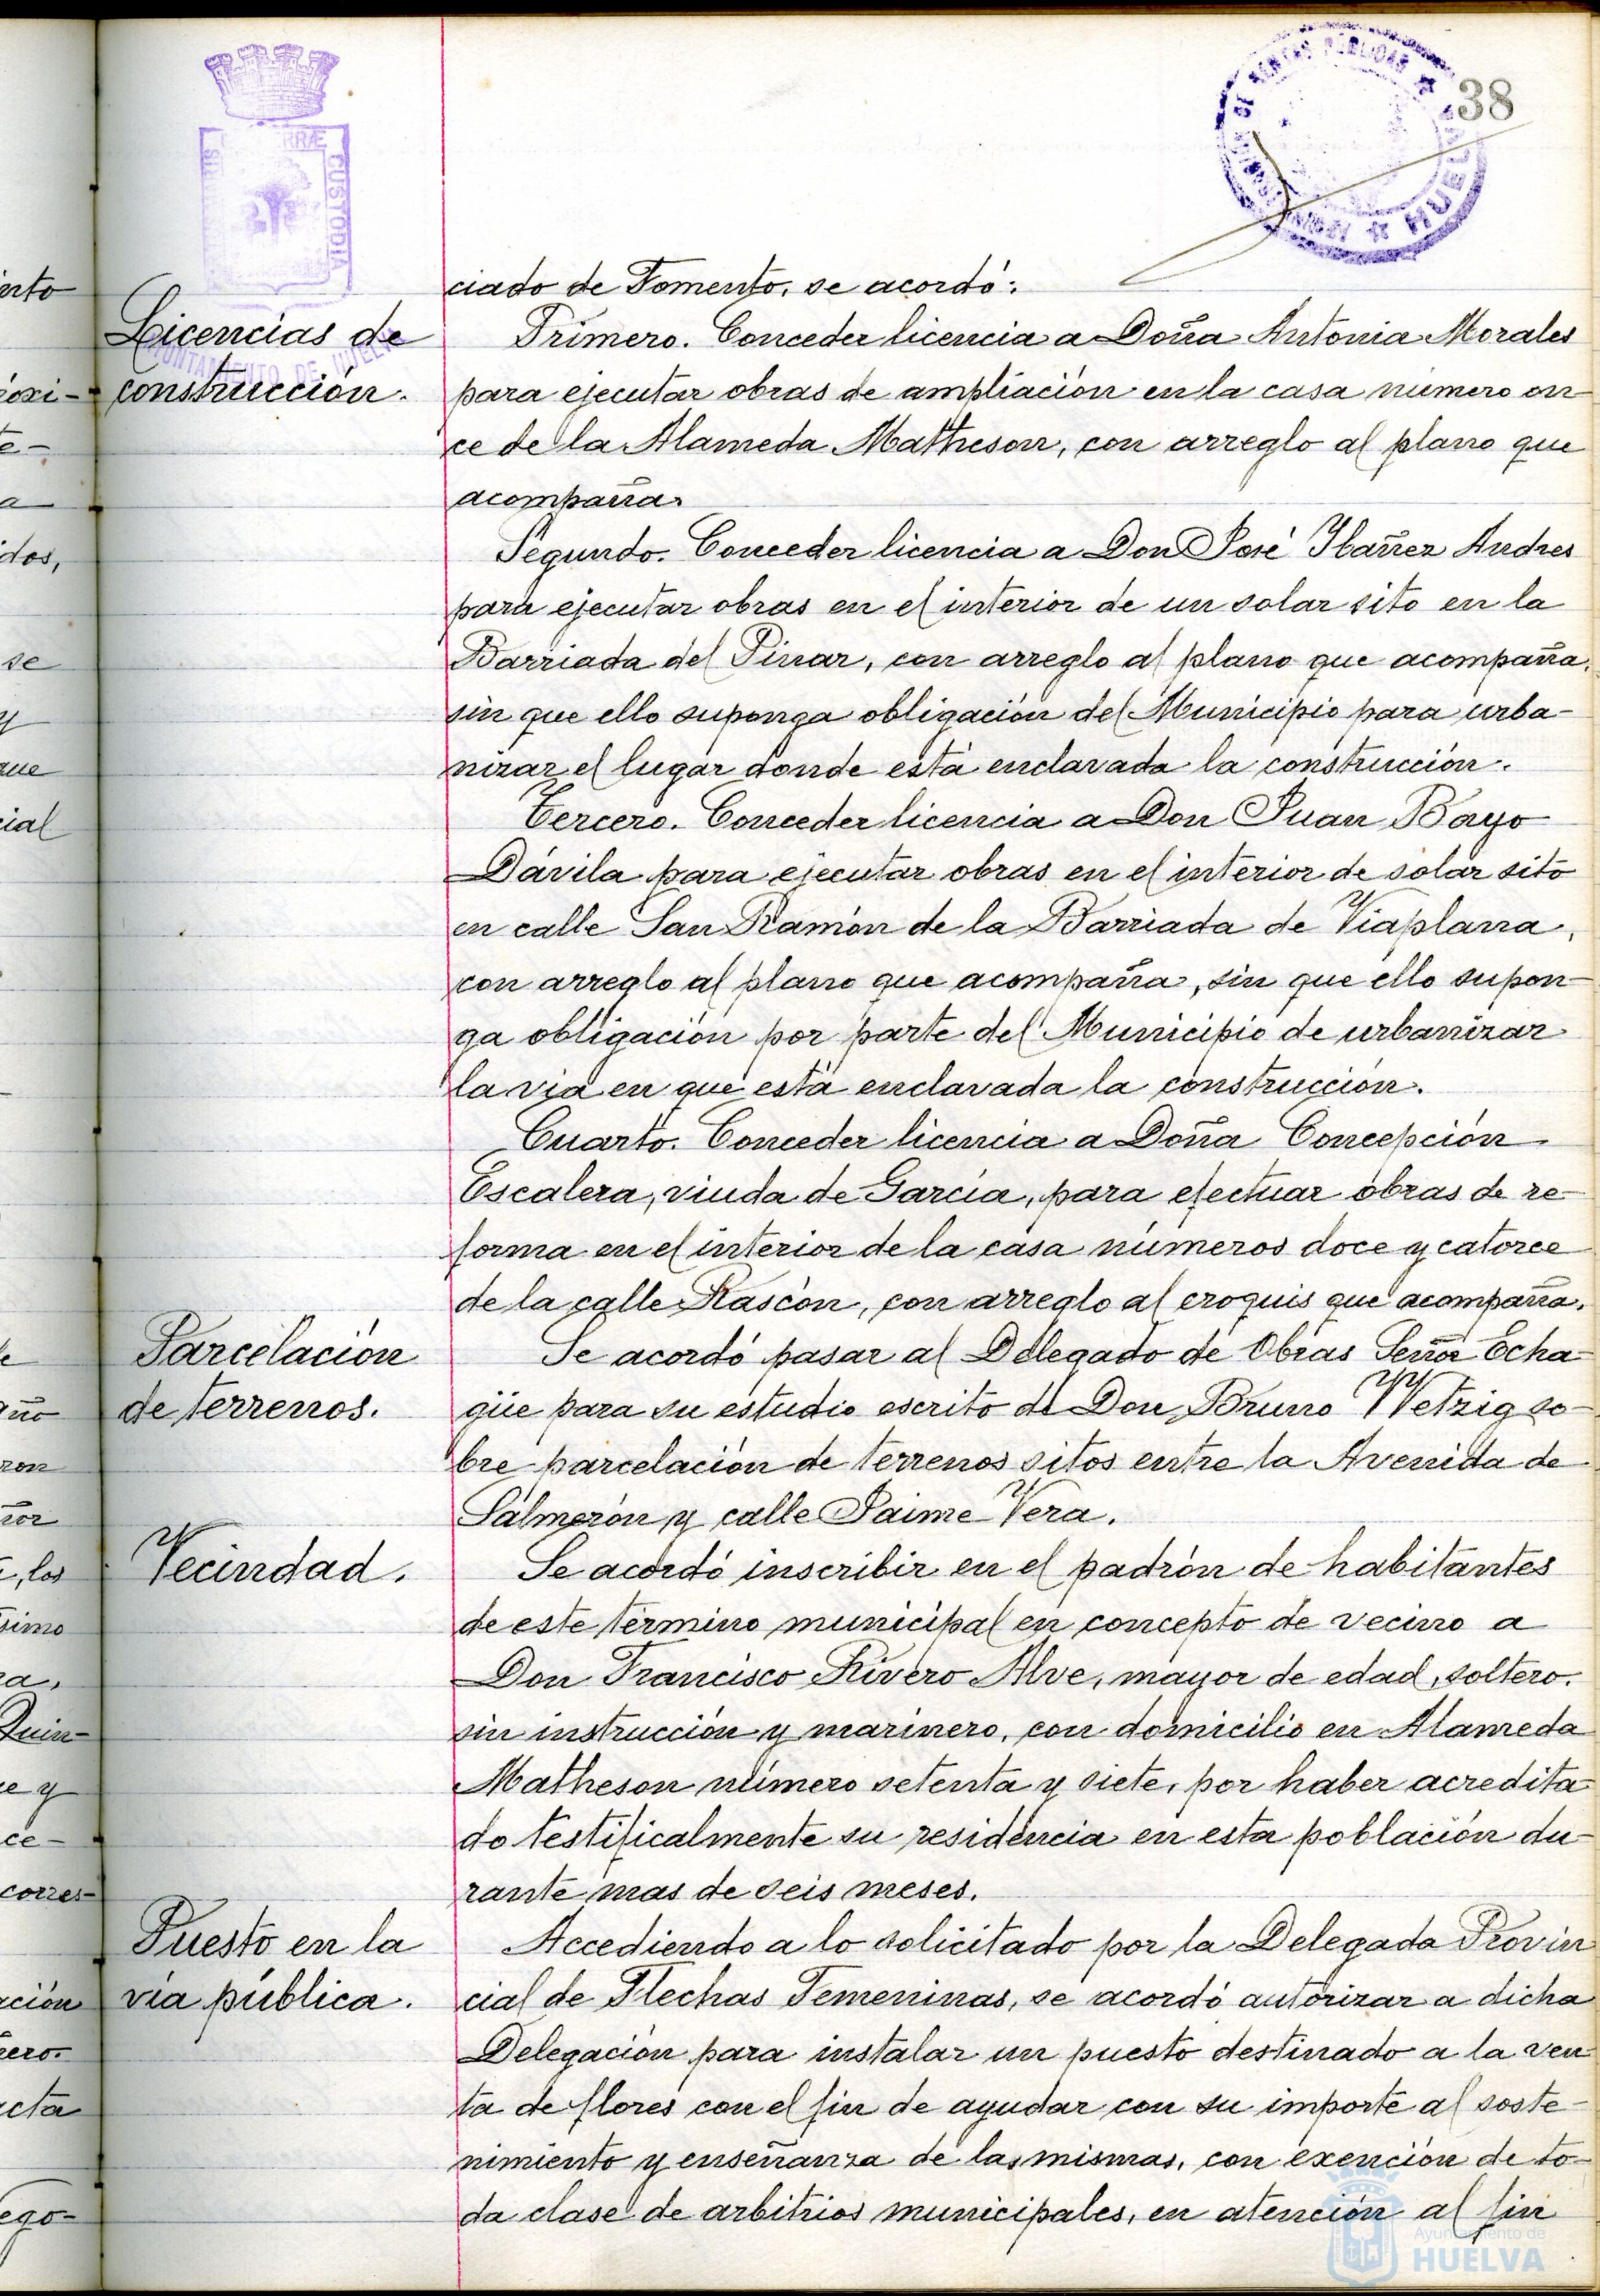 38
ciado de Fomento, se acordó:
Licencias de
construcción.
Primero. Conceder licencia a Doña Antonia Morales
para ejecutar obras de ampliación en la casa número on-
ce de la Alameda Matheson, con arreglo al plano que
acompaña.
Segundo. Conceder licencia a Don José Ybañez Andres
para ejecutar obras en el interior de un solar sito en la
Barriada del Pinar, con arreglo al plano que acompaña,
sin que ello suponga obligación del Municipio para urba-
nizar el lugar donde está enclavada la construcción.
Tercero. Conceder licencia a Don Juan Bayo
Dávila para ejecutar obras en el interior de solar sito
en calle San Ramón de la Barriada de Viaplana,
con arreglo al plano que acompaña, sin que ello supon-
ga obligación por parte del Municipio de urbanizar
la vía en que está enclavada la construcción.
Cuarto. Conceder licencia a Doña Concepción
Escalera, viuda de García, para efectuar obras de re-
forma en el interior de la casa números doce y catorce
de la calle Rascón, con arreglo al croquis que acompaña.
Parcelación
de terrenos.
Se acordó pasar al Delegado de Obras Señor Echa-
güe para su estudio escrito de Don Bruno Wetzig so-
bre parcelación de terrenos sitos entre la Avenida de
Salmerón y calle Jaime Vera.
Vecindad.
Se acordó inscribir en el padrón de habitantes
de este término municipal en concepto de vecino a
Don Francisco Rivero Alve, mayor de edad, soltero,
sin instrucción y marinero, con domicilio en Alameda
Matheson número setenta y siete, por haber acredita-
do testificalmente su residencia en esta población du-
rante mas de seis meses.
Puesto en la
vía pública.
Accediendo a lo solicitado por la Delegada Provin
cial de Flechas Femeninas, se acordó autorizar a dicha
Delegación para instalar un puesto destinado a la ven
ta de flores con el fin de ayudar con su importe al soste-
nimiento y enseñanza de las mismas, con exención de to-
da clase de arbitrios municipales, en atención al fin
CUSTODIA
HUELVA
Ayuntamiento de
HUELVA